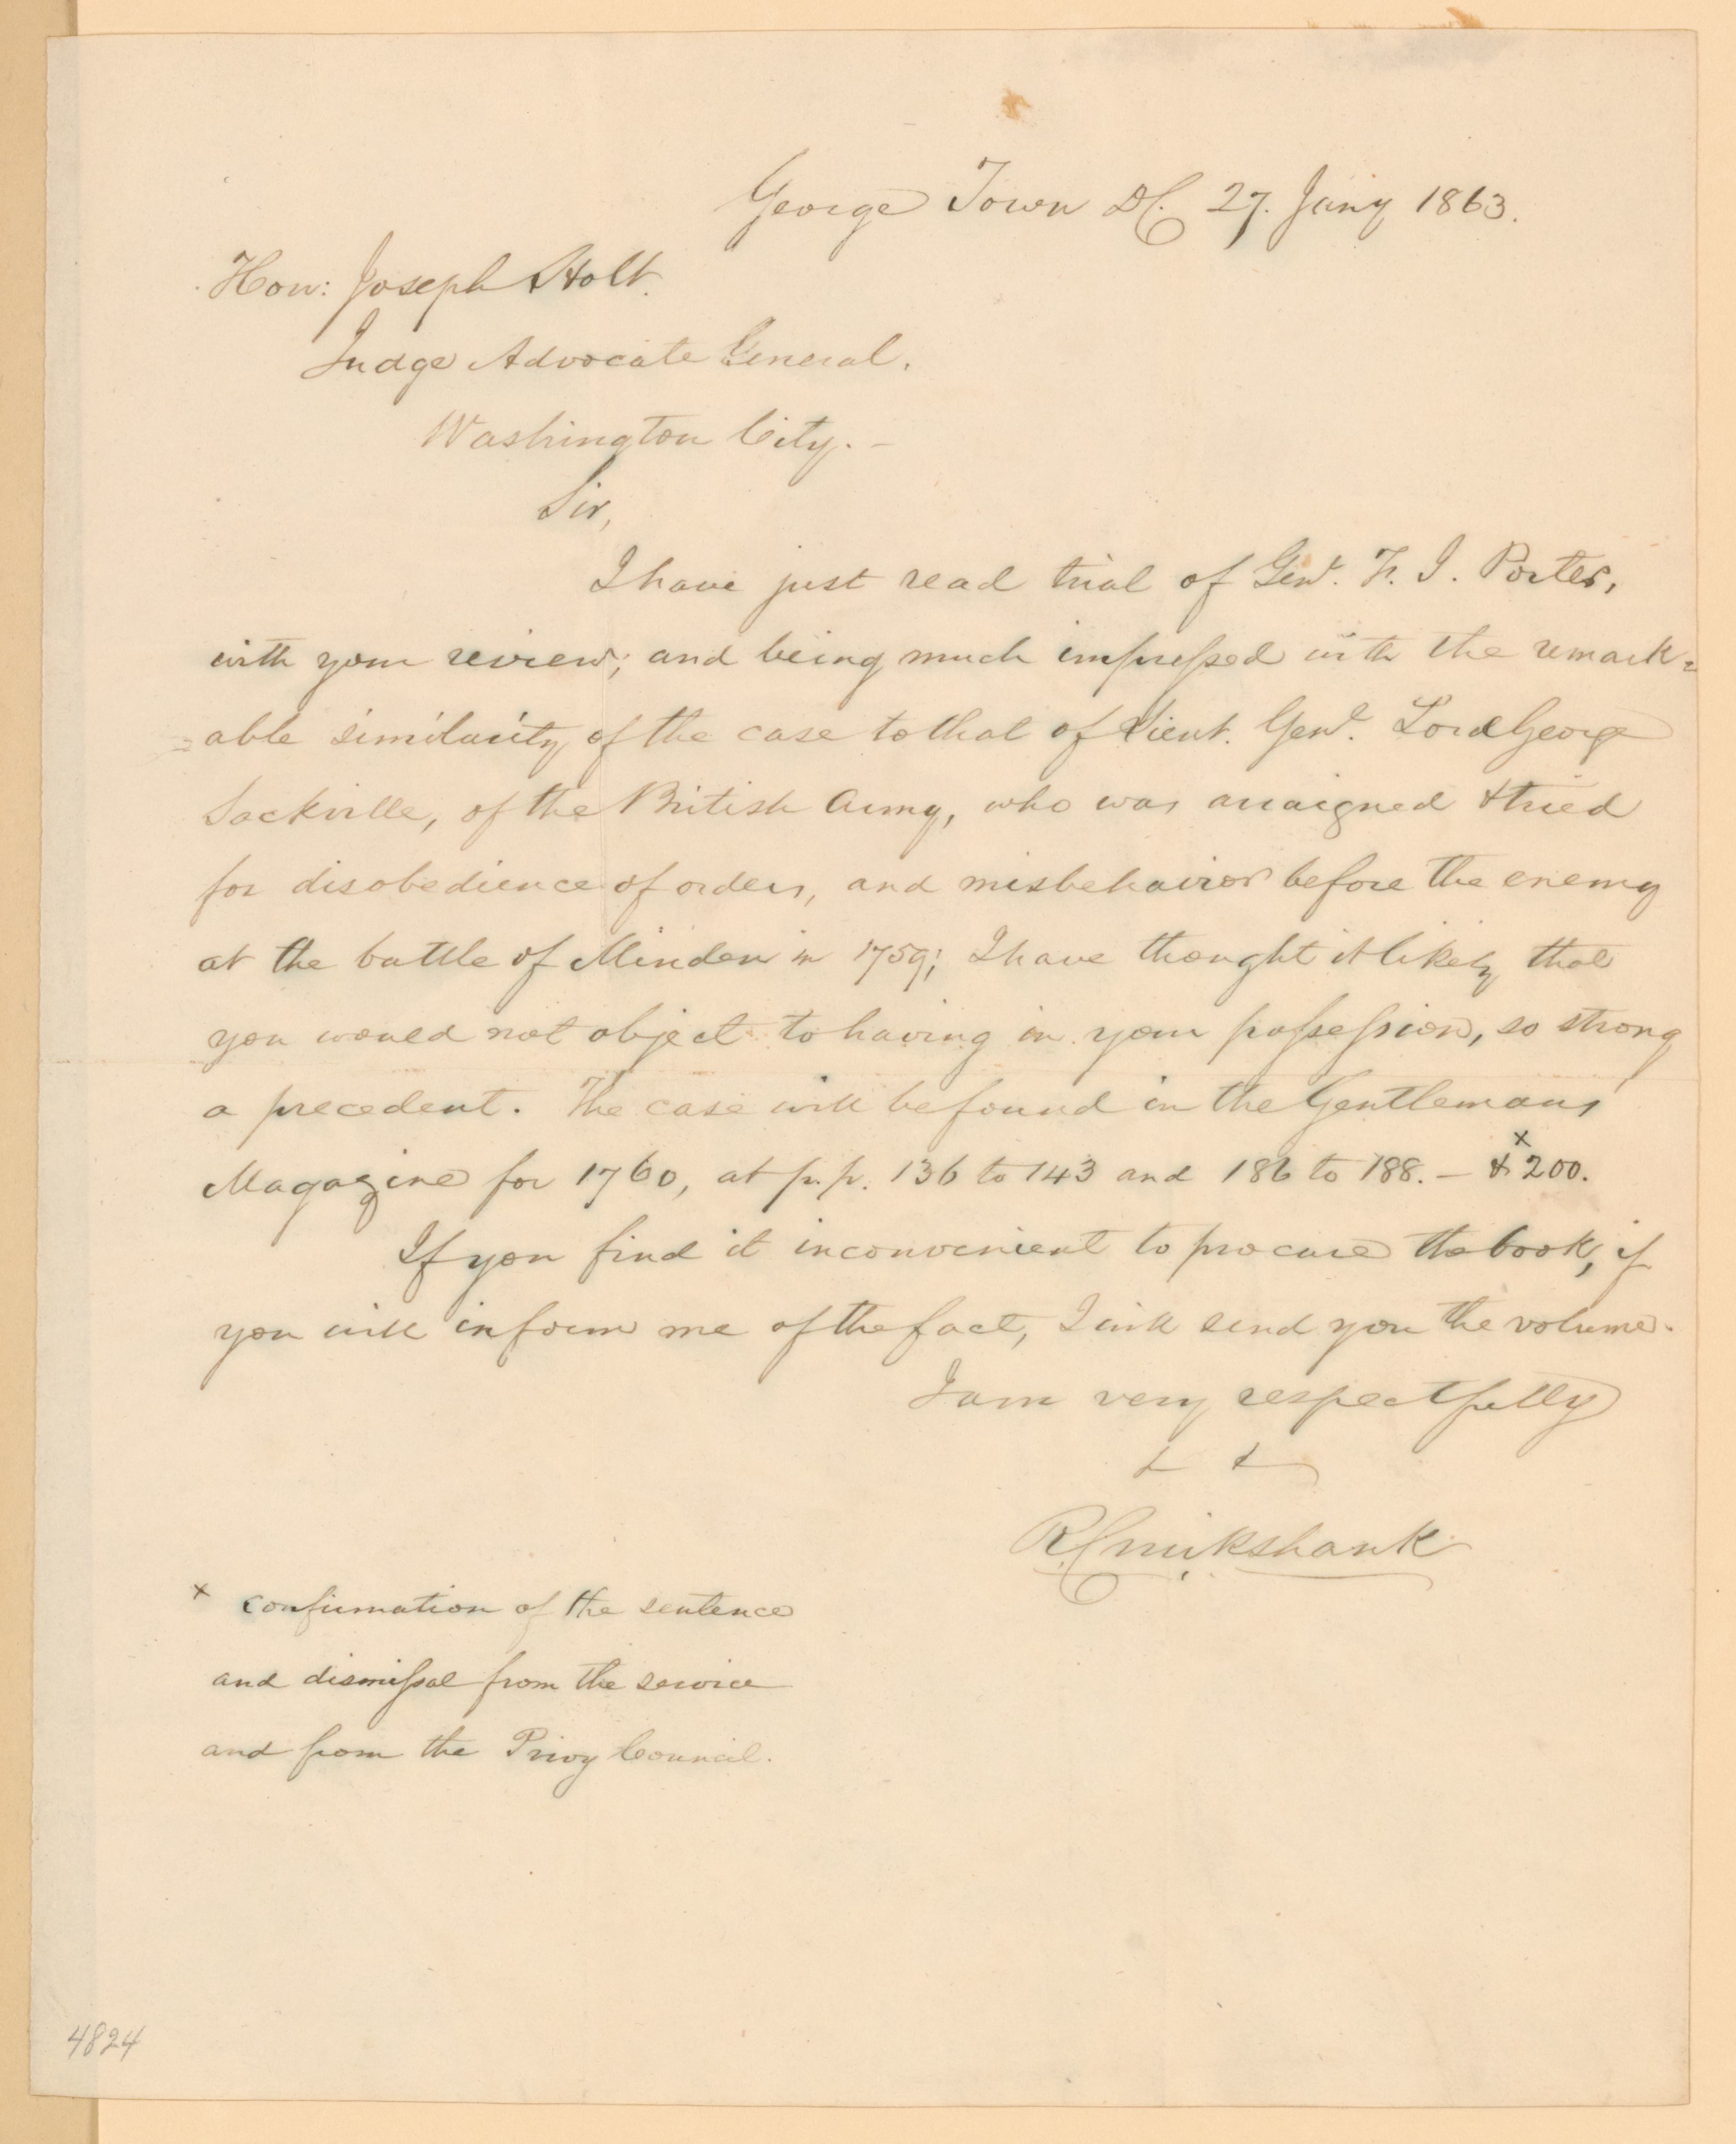 George Town DC. 27. Jany 1863.
Hon: Joseph Holt.
Judge Advocate General.
Washington City. –
Sir,
I have just read trial of Genl. F. J. Porter,
with your review; and being much impressed with the remark=
=able similarity of the case to that of Lieut. Genl. Lord George
Sackville, of the British Army, who was arraigned & tried
for disobedience of orders, and misbehavior before the enemy
at the battle of Minden in 1759; I have thought it likely that
you would not object to having in your possession, so strong
a precedent. The case will be found in the Gentleman's
Magazine for 1760, at p.p. 136 to 143 and 186 to 188. – & x200.
If you find it inconvenient to procure the book, if
you will inform me of the fact, I will send you the volume.
I am very respectfully
& &
R. Cruikshank
x confirmation of the sentence
and dismissal from the service
and from the Privy Council.
4824